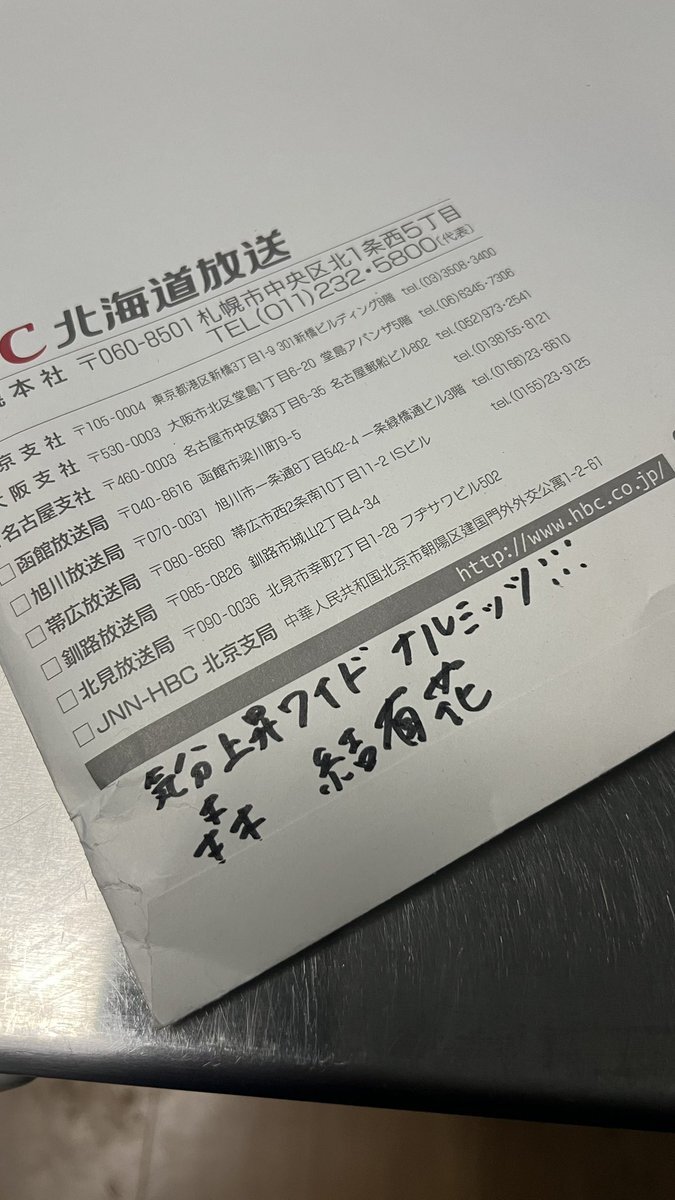 C 北海道放送
本社 〒060-8501 札幌市中央区北1条西5丁目
TEL(011)232・5800(代表)
京支社 〒105-0004 東京都港区新橋3丁目1-9 301新橋ビルディング8階 tel.(03)3508・3400
大阪支社 〒530-0003 大阪市北区堂島1丁目6-20 堂島アバンザ5階 tel.(06)6345・7306
名古屋支社 〒460-0003 名古屋市中区錦3丁目6-35 名古屋郵船ビル802 tel.(052)973・2541
□函館放送局 〒040-8616 函館市梁川町9-5 tel.(0138)55・8121
□旭川放送局 〒070-0031 旭川市一条通8丁目542-4 一条緑橋通ビル3階 tel.(0166)23・6610
□帯広放送局 〒080-8560 帯広市西2条南10丁目11-2 ISビル tel.(0155)23・9125
□釧路放送局 〒085-0826 釧路市城山2丁目4-34
□北見放送局 〒090-0036 北見市幸町2丁目1-28 フヂサワビル502
□JNN-HBC 北京支局 中華人民共和国北京市朝陽区建国門外外交公寓1-2-61
http://www.hbc.co.jp/
気分上昇ワイド ナルミッツ!!!
森 結有花